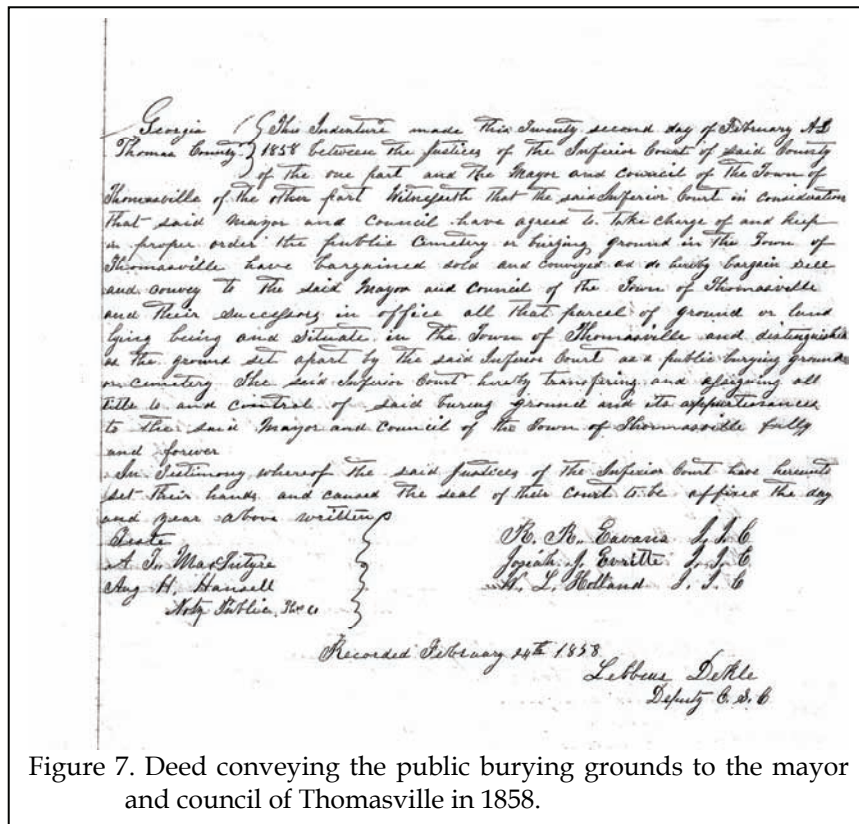 Georgia } This Indenture made this Twenty second day of February AD
Thomas County } 1858 between the Justices of the Inferior Court of said County
of the one part and the Mayor and council of the Town of
Thomasville of the other part Witnesseth that the said Inferior Court in consideration
that said Mayor and Council have agreed to take charge of and keep
in proper order the public Cemetery or burying ground in the Town of
Thomasville have bargained sold and conveyed as do hereby bargain sell
and convey to the said Mayor and council of the Town of Thomasville
and their successors in office all that parcel of ground or land
lying being and situate in the Town of Thomasville and distinguished
as the ground set apart by the said Inferior Court as a public burying ground
or cemetery The said Inferior Court hereby transfering and assigning all
title to and control of said buring ground and its appurtenances
to the said Mayor and Council of the Town of Thomasville fully
and forever
In Testimony whereof the said Justices of the Inferior Court have hereunto
set their hands and caused the seal of their Court to be affixed the day
and year above written
Teste
A. T. MacIntyre
Aug H. Hansell
Noty Public
R. R. Eavans J. I. C
Josiah J. Evritte J. I. C
W. L. Holland J. I. C
Recorded February 24th 1858
Lebbeus Dekle
Deputy C. S. C
Figure 7. Deed conveying the public burying grounds to the mayor
and council of Thomasville in 1858.